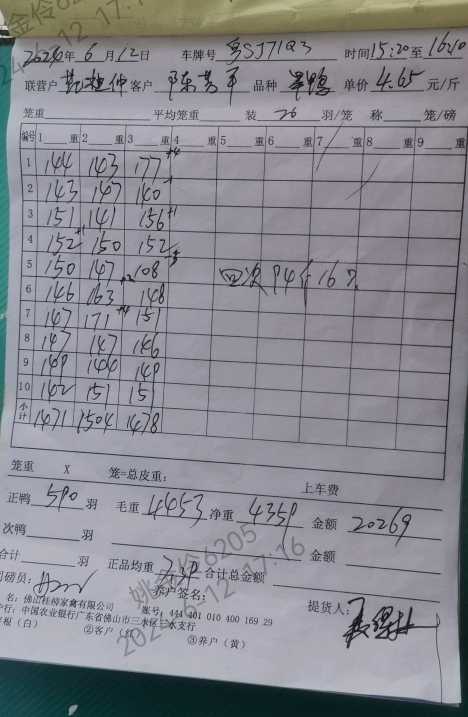 2024年 6 月 12 日 车牌号 粤SJ71Q3 时间 15:20 至 16:10
联营户 客户 陈 平 品种 单价 4.65 元/斤
笼重 平均笼重 装 26 羽/笼 称 笼/磅
编号 1 重 2 重 3 重 4 重 5 重 6 重 7 重 8 重 9 重
1 144 143 177 +4
2 143 147 140
3 151 141 156 +1
4 152 +1 150 152
5 150 147 108
6 146 163 148
7 147 171 +4 151
8 147 147 146
9 149 144 149
10 142 151 151
小计 1471 1504 1478
笼重 X 笼=总皮重: 上车费
正鸭 590 羽 毛重 4453 净重 4359 金额 20269
次鸭 羽 金额
合计 羽 正品均重 7.39 合计总金额
司磅员: 养户签名: 提货人:
名: 佛山桂柳家禽有限公司 账号: 444 401 010 400 169 29
户行: 中国农业银行广东省佛山市三水区三水支行
(白) ②客户(红) ③养户(黄)
姚金伶6205
2024-6-12 17:16